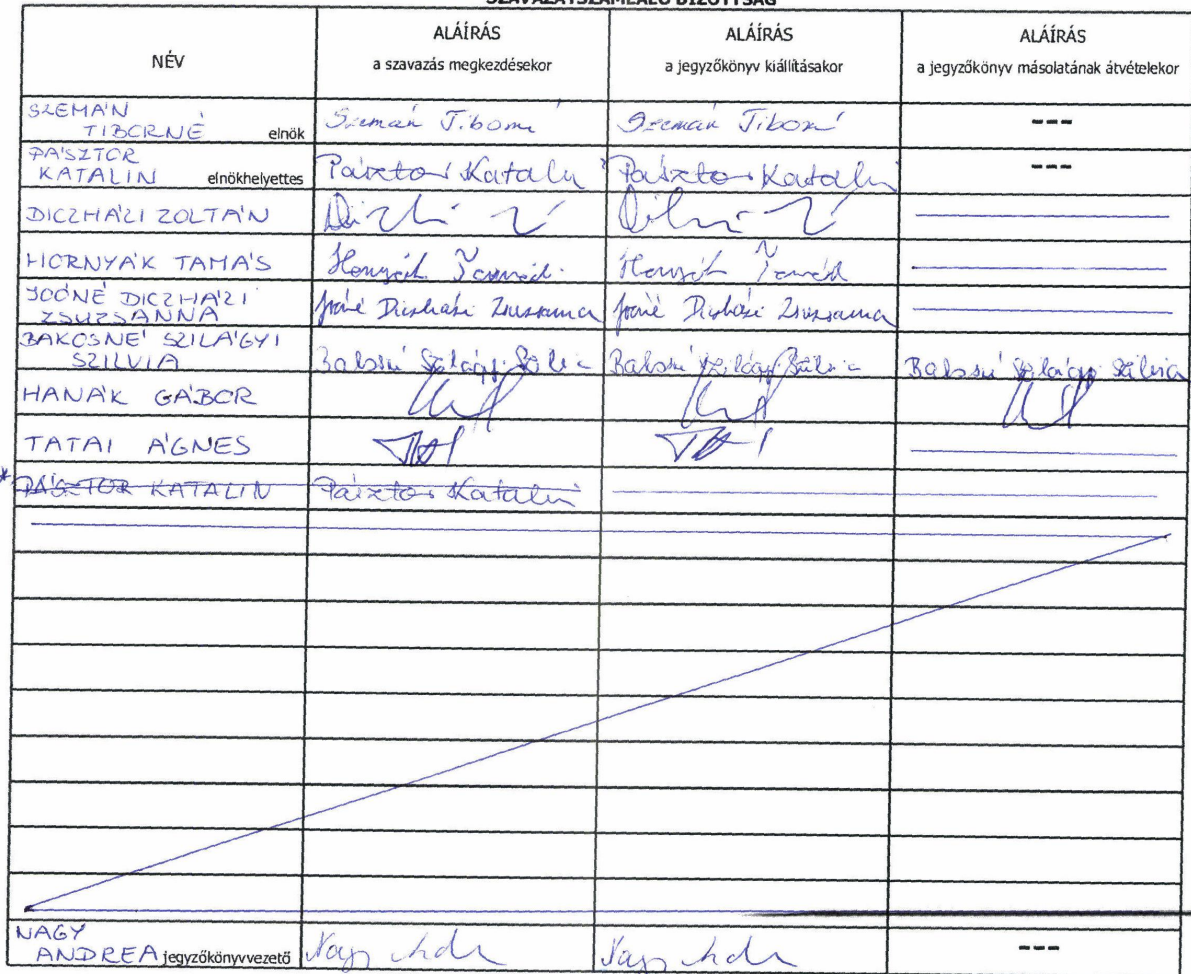 SZAVAZATSZÁMLÁLÓ BIZOTTSÁG
NÉV
ALÁÍRÁS
a szavazás megkezdésekor
ALÁÍRÁS
a jegyzőkönyv kiállításakor
ALÁÍRÁS
a jegyzőkönyv másolatának átvételekor
SZEMÁN
TIBORNÉ elnök Szemán Tiborné Szemán Tiborné ---
PÁSZTOR
KATALIN elnökhelyettes Pásztor Katalin Pásztor Katalin ---
DICZHÁZI ZOLTÁN
HORNYÁK TAMÁS Hornyák Tamás Hornyák Tamás
JOÓNÉ DICZHÁZI
ZSUZSANNA Joóné Diczházi Zsuzsanna Joóné Diczházi Zsuzsanna
BAKOSNÉ SZILÁGYI
SZILVIA Bakosné Szilágyi Szilvia Bakosné Szilágyi Szilvia Bakosné Szilágyi Szilvia
HANÁK GÁBOR
TATAI ÁGNES
* PÁSZTOR KATALIN Pásztor Katalin
NAGY
ANDREA jegyzőkönyvvezető Nagy Nagy ---